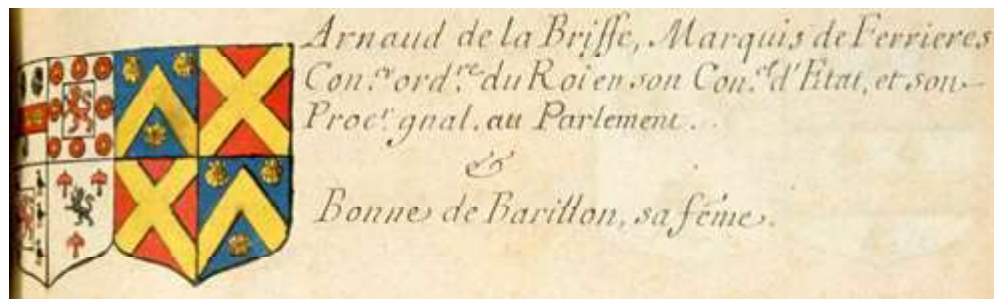 Arnaud de la Briffe, Marquis de Ferrieres
Con.er ord.re du Roi en son Con.el d'Etat, et son
Procr. gnal. au Parlement.
&
Bonne de Barillon, sa féme.